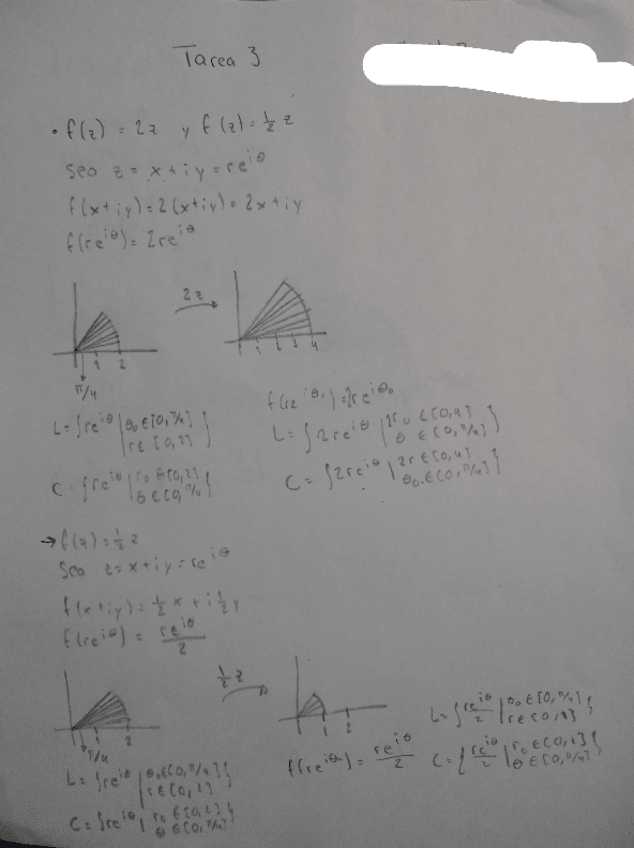 Tarea 3
• f(z) = 2z y f(z) = ½ z
Sea z = x + iy = re^{iθ}
f(x+iy) = 2(x+iy) = 2x + iy
f(re^{iθ}) = 2re^{iθ}
2z
1 2
π/4
1 2 3 4
L = {re^{iθ} | θ₀ ∈ [0, π/4]
r ∈ [0, 2] }
C = {re^{iθ} | r₀ ∈ [0, 2]
θ ∈ [0, π/4] }
L = {2re^{iθ} | 2r₀ ∈ [0, 4]
θ ∈ [0, π/4] }
C = {2re^{iθ} | 2r ∈ [0, 4]
θ₀ ∈ [0, π/4] }
→ f(z) = ½ z
Sea z = x + iy = re^{iθ}
f(x+iy) = ½ x + i ½ y
f(re^{iθ}) = re^{iθ}/2
½ z
π/4 2
1 2
L = {re^{iθ} | θ₀ ∈ [0, π/4]
r ∈ [0, 2] }
C = {re^{iθ} | r₀ ∈ [0, 2]
θ ∈ [0, π/4] }
f(re^{iθ₀}) = re^{iθ}/2
L = {re^{iθ}/2 | θ₀ ∈ [0, π/4]
r ∈ [0, 1] }
C = {re^{iθ}/2 | r₀ ∈ [0, 1]
θ ∈ [0, π/4] }